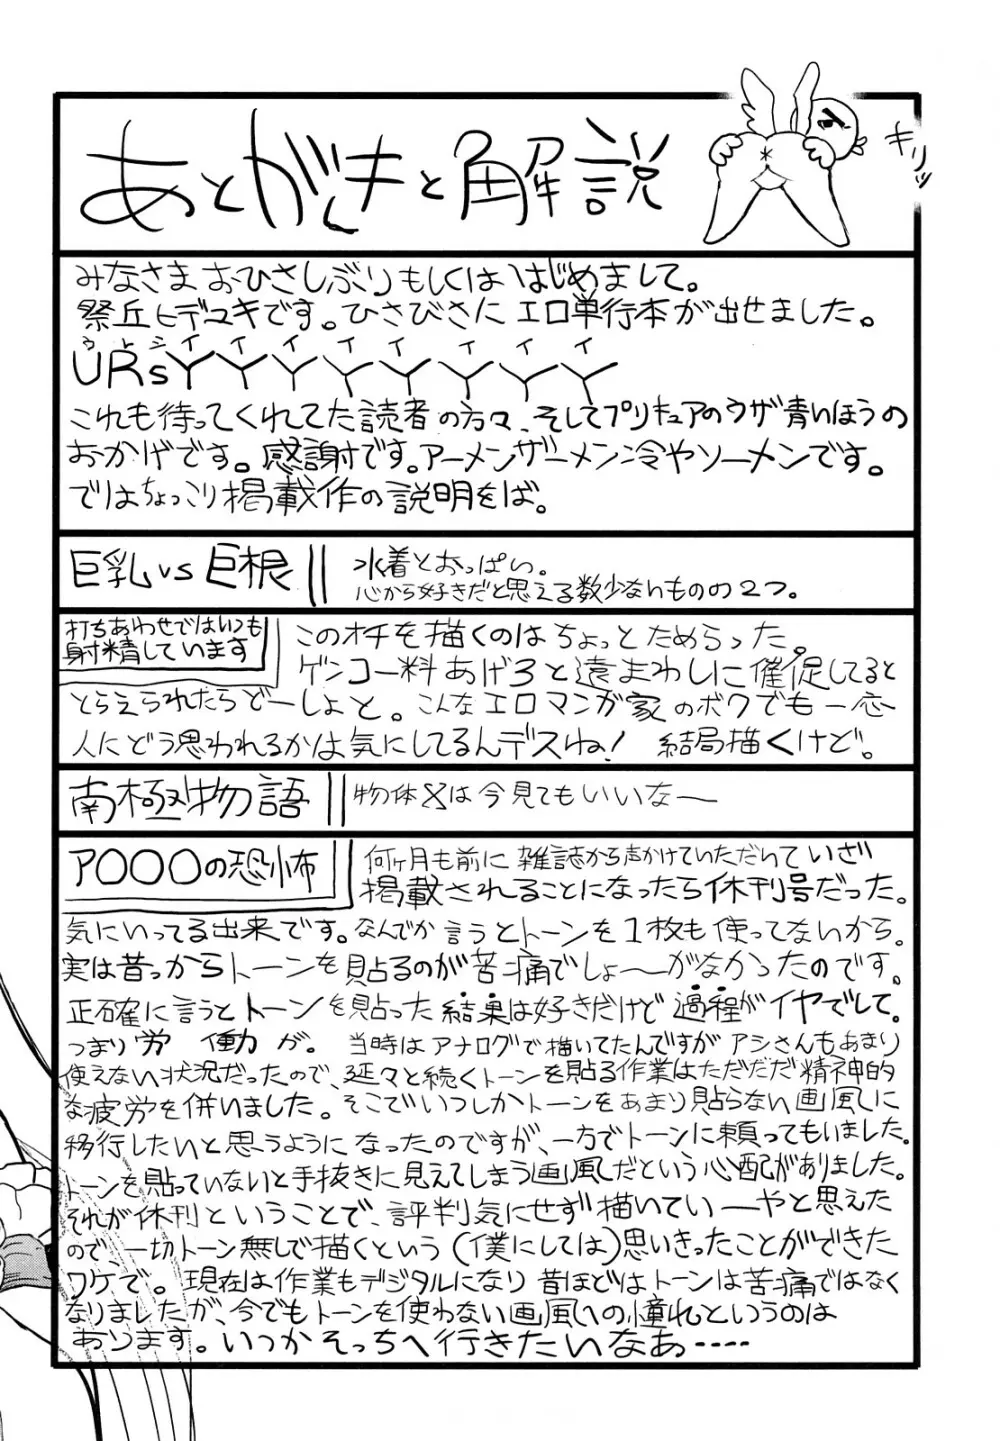 あとがきと解説
キリッ
みなさまおひさしぶりもしくははじめまして。
祭丘ヒデユキです。ひさびさにエロ単行本が出せました。
ウレシイイイイイイイイ
URsYYYYYYYY
これも待っててくれてた読者の方々、そしてプリキュアのウザ青いほうの
おかげです。感謝です。アーメンザーメン冷やソーメンです。
ではちょっこり掲載作の説明をば。
巨乳vs巨根
水着とおっぱい。
心から好きだと思える数少ないものの2つ。
打ちあわせではいつも
射精しています
このオチを描くのはちょっとためらった。
ゲンコー料あげろと遠まわしに催促してると
とらえられたらどーしよと。こんなエロマンガ家のボクでも一応
人にどう思われるかは気にしてるんデスね! 結局描くけど。
南極物語
物体Xは今見てもいいなー
ア〇〇〇の恐怖
何ヶ月も前に雑誌から声かけていただいていざ
掲載されることになったら休刊号だった。
気にいってる出来です。なんでか言うとトーンを1枚も使ってないから。
実は昔っからトーンを貼るのが苦痛でしょ〜がなかったのです。
正確に言うとトーンを貼った結果は好きだけど過程がイヤでして。
つまり労働が。当時はアナログで描いてたんですがアシさんもあまり
使えない状況だったので、延々と続くトーンを貼る作業はただただ精神的
な疲労を併いました。そこでいつしかトーンをあまり貼らない画風に
移行したいと思うようになったのですが、一方でトーンに頼ってもいました。
トーンを貼っていないと手抜きに見えてしまう画風だという心配がありました。
それが休刊ということで、評判気にせず描いていいーやと思えた
ので一切トーン無しで描くという(僕にしては)思いきったことができた
ワケで。現在は作業もデジタルになり昔ほどはトーンは苦痛ではなく
なりましたが、今でもトーンを使わない画風への憧れというのは
あります。いつかそっちへ行きたいなあ‥‥